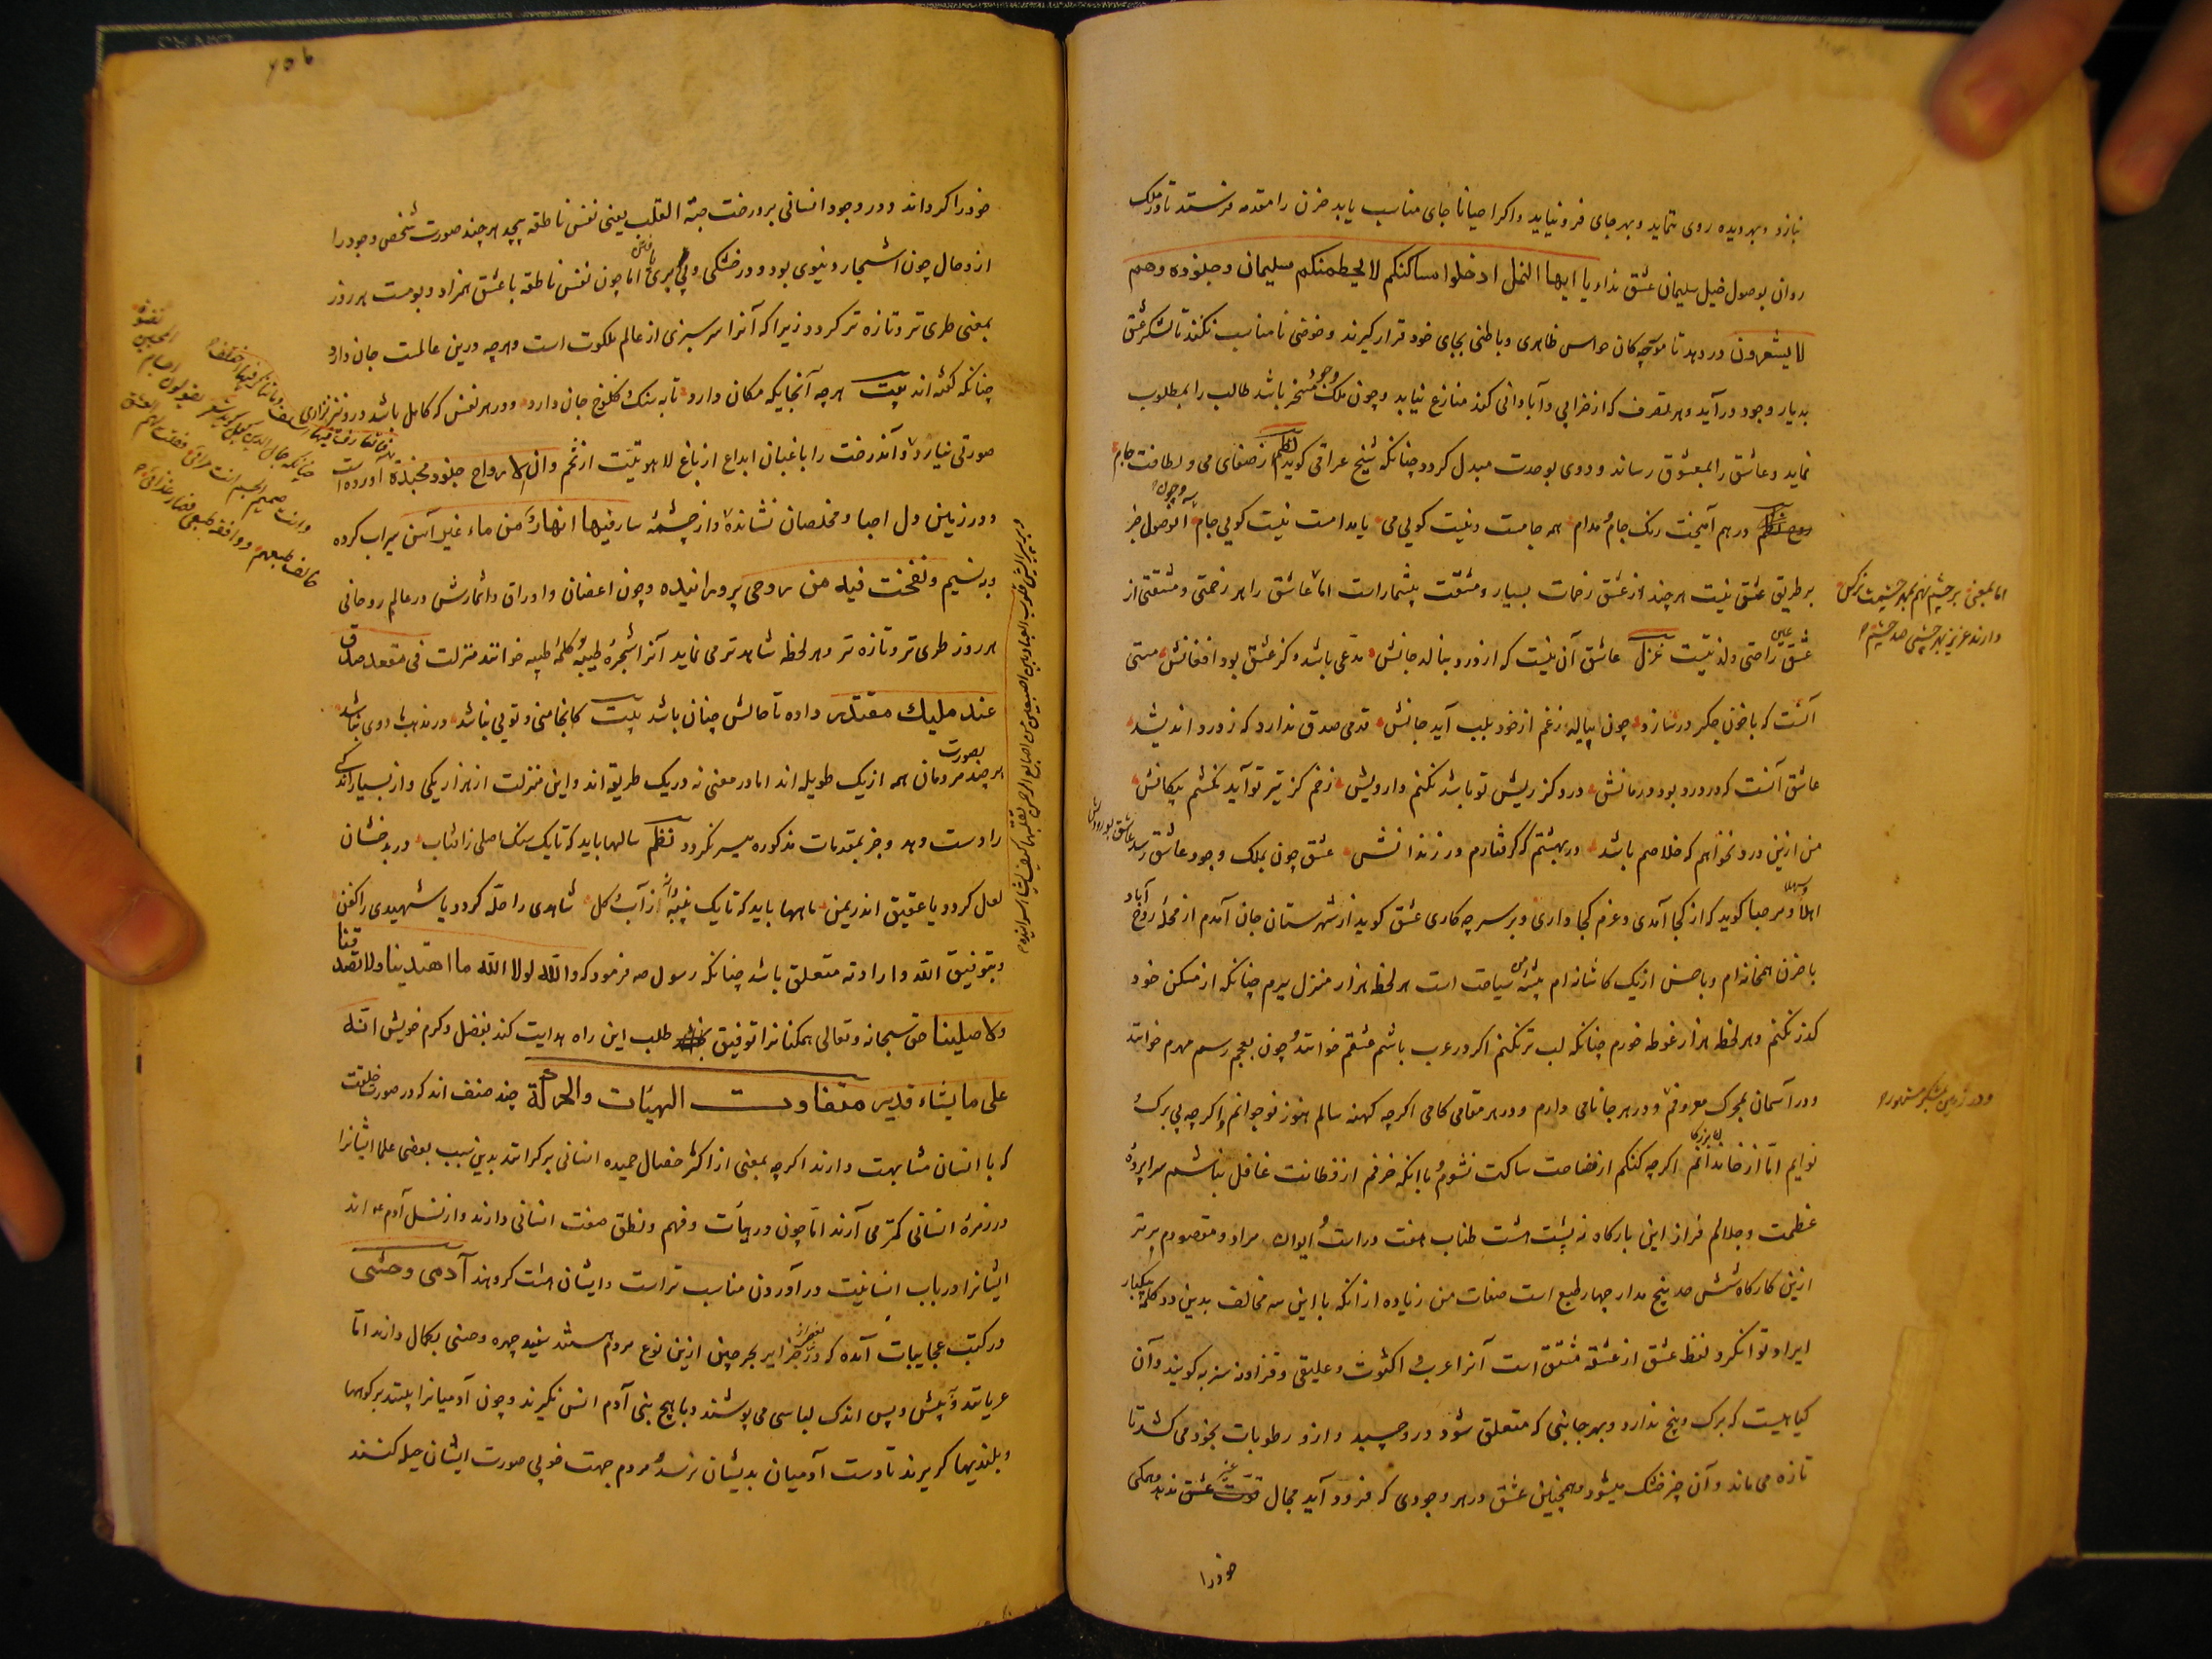 نیازد و بهر دیده روی ننماید و بهر جای فرو نیاید و اگر احیانا جای مناسب یابد حزن را مقدمه فرستد تا در ملک
روان بوصول خیل سلیمان عشق ندا و یا ایها النمل ادخلوا مساکنکم لا یحطمنکم سلیمان و جنوده و هم
لا یشعرون در دهد تا مورچه کان حواس ظاهری و باطنی بجای خود قرار گیرند و خوضی نامناسب نکنند تا لشکر عشق
بدیار وجود درآید و هر تصرف که از خرابی و آبادانی کند منازع نیابد و چون ملک وجود مسخر باشد طالب را بمطلوب
نماید و عاشق را بمعشوق رساند و دوی بوحدت مبدل گردد چنانکه شیخ عراقی گوید نظم از صفای می و لطافت جام
درهم آمیخت رنک جام و مدام همه جامست و نیست کویی می یا مدامست نیست کویی جام و چون وصول جز
بر طریق عشق نیست هر چند از عشق زحمات بسیار و مشقت بیشمار است اما عاشق را هر زحمتی و مشقتی از
عشق عین راحتی و لذتیست غزل عاشق آن نیست که از درد بنالد جانش مدعی باشد و کز عشق بود افغانش مستی
آنست که با خون جکر در سازد چون پیاله ز غم از خود بلب آید جانش قدمی صدق ندارد که ز درد اندیشد
عاشق آنست که در درد بود درمانش درد کز ریش تو باشد نکنم دارویش زخم کز تیر تو آید نکشم پیکانش
من ازین درد نخواهم که خلاصم باشد در بهشتم که گرفتارم در زندانش عشق چون بملک وجود عاشق رسد
اهلا و سهلا و مرحبا گوید که از کجا آمدی و عزم کجا داری و بر سر چه کاری عشق گوید از شهرستان جان آمدم از محله روح آباد
با حزن همخانه ام و با حسن از یک کاشانه ام پیشه من سیاحت است هر لحظه هزار منزل ببرم چنانکه از مسکن خود
گذر نکنم و هر لحظه هزار غوطه خورم چنانکه لب تر نکنم اگر در عرب باشم عشقم خوانند و چون بعجم رسم مهرم خوانند
و در آسمان بمحرک معروفم و در هر جا نامی دارم و در هر مقامی کامی اگر چه کهنه سالم هنوز نوجوانم و اگر چه بی برک
نوایم اما از خاندان بزرگانم اگر چه گنگم از فصاحت ساکت نشوم و با انکه خرفم از فطانت غافل نباشم سراپرده
عظمت و جلالم فراز این بارگاه نه پشت هشت طناب هفت در است و ایوان مراد و مقصودم برتر
ازین کارگاه شش حد پنج مدار چهار طبع است صفات من زیاده از انکه با این سه مخالف بدین دو کلمه یکبار
ایراد توانکرد لفظ عشق از عشقه مشتق است آنرا عرب اکثوث و علیقی و قزاونه سزبه گویند و آن
گیاهیست که برک و بیخ ندارد و بهر جانبی که متعلق شود در وچسبد و ازو رطوبات بخود می کشد تا
تازه می ماند و آن چیز خشک میشود و همچنین عشق در هر وجودی که فرود آید مجال غیر عشق ندهد و همگی
خود را
اما بمعنی بر چشم نهم بهر چشمت نرکس
دارند عزیز بهر چشمی صد چشم
و در زمین بسکون مشهورم
۷۵۶
خود را گرداند و در وجود انسانی بر درخت حبة القلب یعنی نفس ناطقه پیچد هر چند صورت شخص وجود را
از و حال چون اشجار دنیوی بود و در خشکی و بی بری اما چون نفس ناطقه با عشق همزاد و بوست هر روز
بمعنی طری تر و تازه تر گردد زیرا که آنرا سرسبزی از عالم ملکوت است و هر چه درین عالمست جان دارد
چنانکه گفته اند بیت هر چه آنجایکه مکان دارد تا به سنک و کلوخ جان دارد و در هر نفس که کامل باشد درو نیز نزاری
صورتی نیارد و آندرخت را باغبان ابداع از باغ لاهوتیت از تخم وان الارواح جنود مجندة آورده است
و در زمین دل احبا و مخلصان نشانده و از چشمه سار فیها انهار من ماء غیر آسن سیراب کرده
و به نسیم و نفخت فیه من روحی پرورانیده و چون اغصان و اوراق و اثمارش در عالم روحانی
هر روز طری تر و تازه تر و هر لحظه شاهد تر می نماید آنرا شجره طیبه و کلمه طیبه خوانند منزلت فی مقعد صدق
عند ملیك مقتدر داده تا حالش چنان باشد بیت کانجا منی و تویی نباشد در مذهب ما دوی نباشد
هر چند بصورت مردمان همه از یک طویله اند اما در معنی نه در یک طریقه اند و این منزلت از هزار یکی و از بسیار اندکی
را دست دهد و جز بمقدمات مذکوره میسر نگردد نظم سالها باید که تا یک سنک اصلی ز افتاب در بدخشان
لعل گردد یا عقیق اندر یمن ماهها باید که تا یک پنبه دانه ز آب و گل شاهدی را حله گردد یا شهیدی را کفن
و بتوفیق الله و ارادته متعلق باشد چنانکه رسول صه فرمود که والله لولا الله ما اهتدینا ولا تصدقنا
ولا صلینا حق سبحانه و تعالی همگنانرا توفیق طلب این راه هدایت کند بفضل و کرم خویش انه
علی ما یشاء قدیر متفاوت الهیئات والحرکة چند صنف اند که در صورت خلقت
که با انسان مشابهت دارند اگر چه بمعنی از اکثر خصال حمیده انسانی بر کرانند بدین سبب بعضی علما ایشانرا
در زمره انسانی کمتر می آرند اما چون در هیأت و فهم و نطق صفت انسانی دارند و از نسل آدم عه اند
ایشانرا در باب انسانیت در آوردن مناسب تر است و ایشان هشت گروهند آدمی وحشی
در کتب عجایبات آمده که در بعضی از جزایر بحر چین ازین نوع مردم هستند سفید چهره و حسنی بکمال دارند اما
عریانند و پیش و پس اندک لباسی می پوشند و با هیچ بنی آدم انس نگیرند و چون آدمیانرا بینند بر کوهها
و بلندیها گریزند تا دست آدمیان بدیشان نرسد و مردم جهت خوبی صورت ایشان حیله کنند